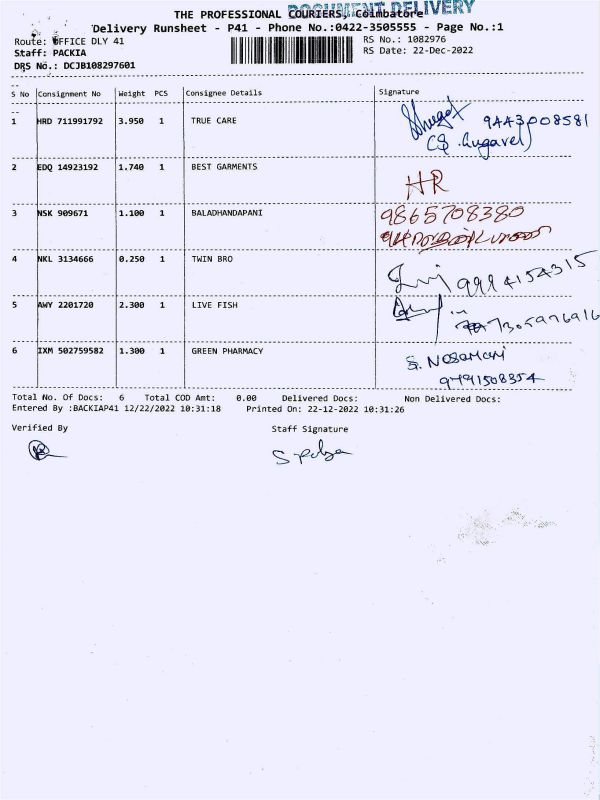 DOCUMENT DELIVERY
THE PROFESSIONAL COURIERS, Coimbatore
Delivery Runsheet - P41 - Phone No.:0422-3505555 - Page No.:1
Route: OFFICE DLY 41
RS No.: 1082976
Staff: PACKIA
RS Date: 22-Dec-2022
DRS No.: DCJB108297601
S No Consignment No Weight PCS Consignee Details Signature
1 HRD 711991792 3.950 1 TRUE CARE
9443008581
2 EDQ 14923192 1.740 1 BEST GARMENTS
HR
3 NSK 909671 1.100 1 BALADHANDAPANI 9865708380
4 NKL 3134666 0.250 1 TWIN BRO
9994154315
5 AWY 2201720 2.300 1 LIVE FISH
7305976916
6 IXM 502759582 1.300 1 GREEN PHARMACY
9791508354
Total No. Of Docs: 6 Total COD Amt: 0.00 Delivered Docs: Non Delivered Docs:
Entered By :BACKIAP41 12/22/2022 10:31:18 Printed On: 22-12-2022 10:31:26
Verified By Staff Signature